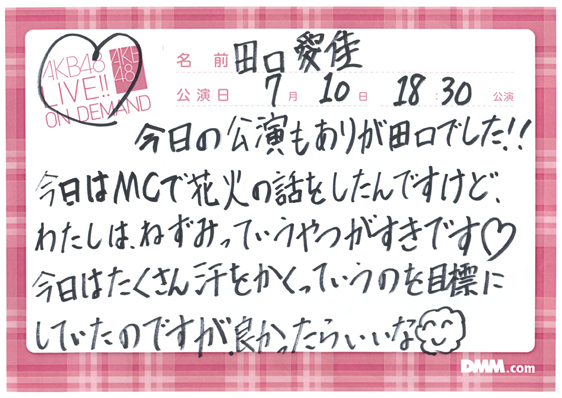 AKB48
LIVE!!
ON DEMAND
AKB
48
名前 田口愛佳
公演日 7月10日 18 30 公演
今日の公演もありが田口でした!!
今日はMCで花火の話をしたんですけど、
わたしは、ねずみっていうやつがすきです♡
今日はたくさん汗をかくっていうのを目標に
していたのですが、良かったらいいな
DMM.com